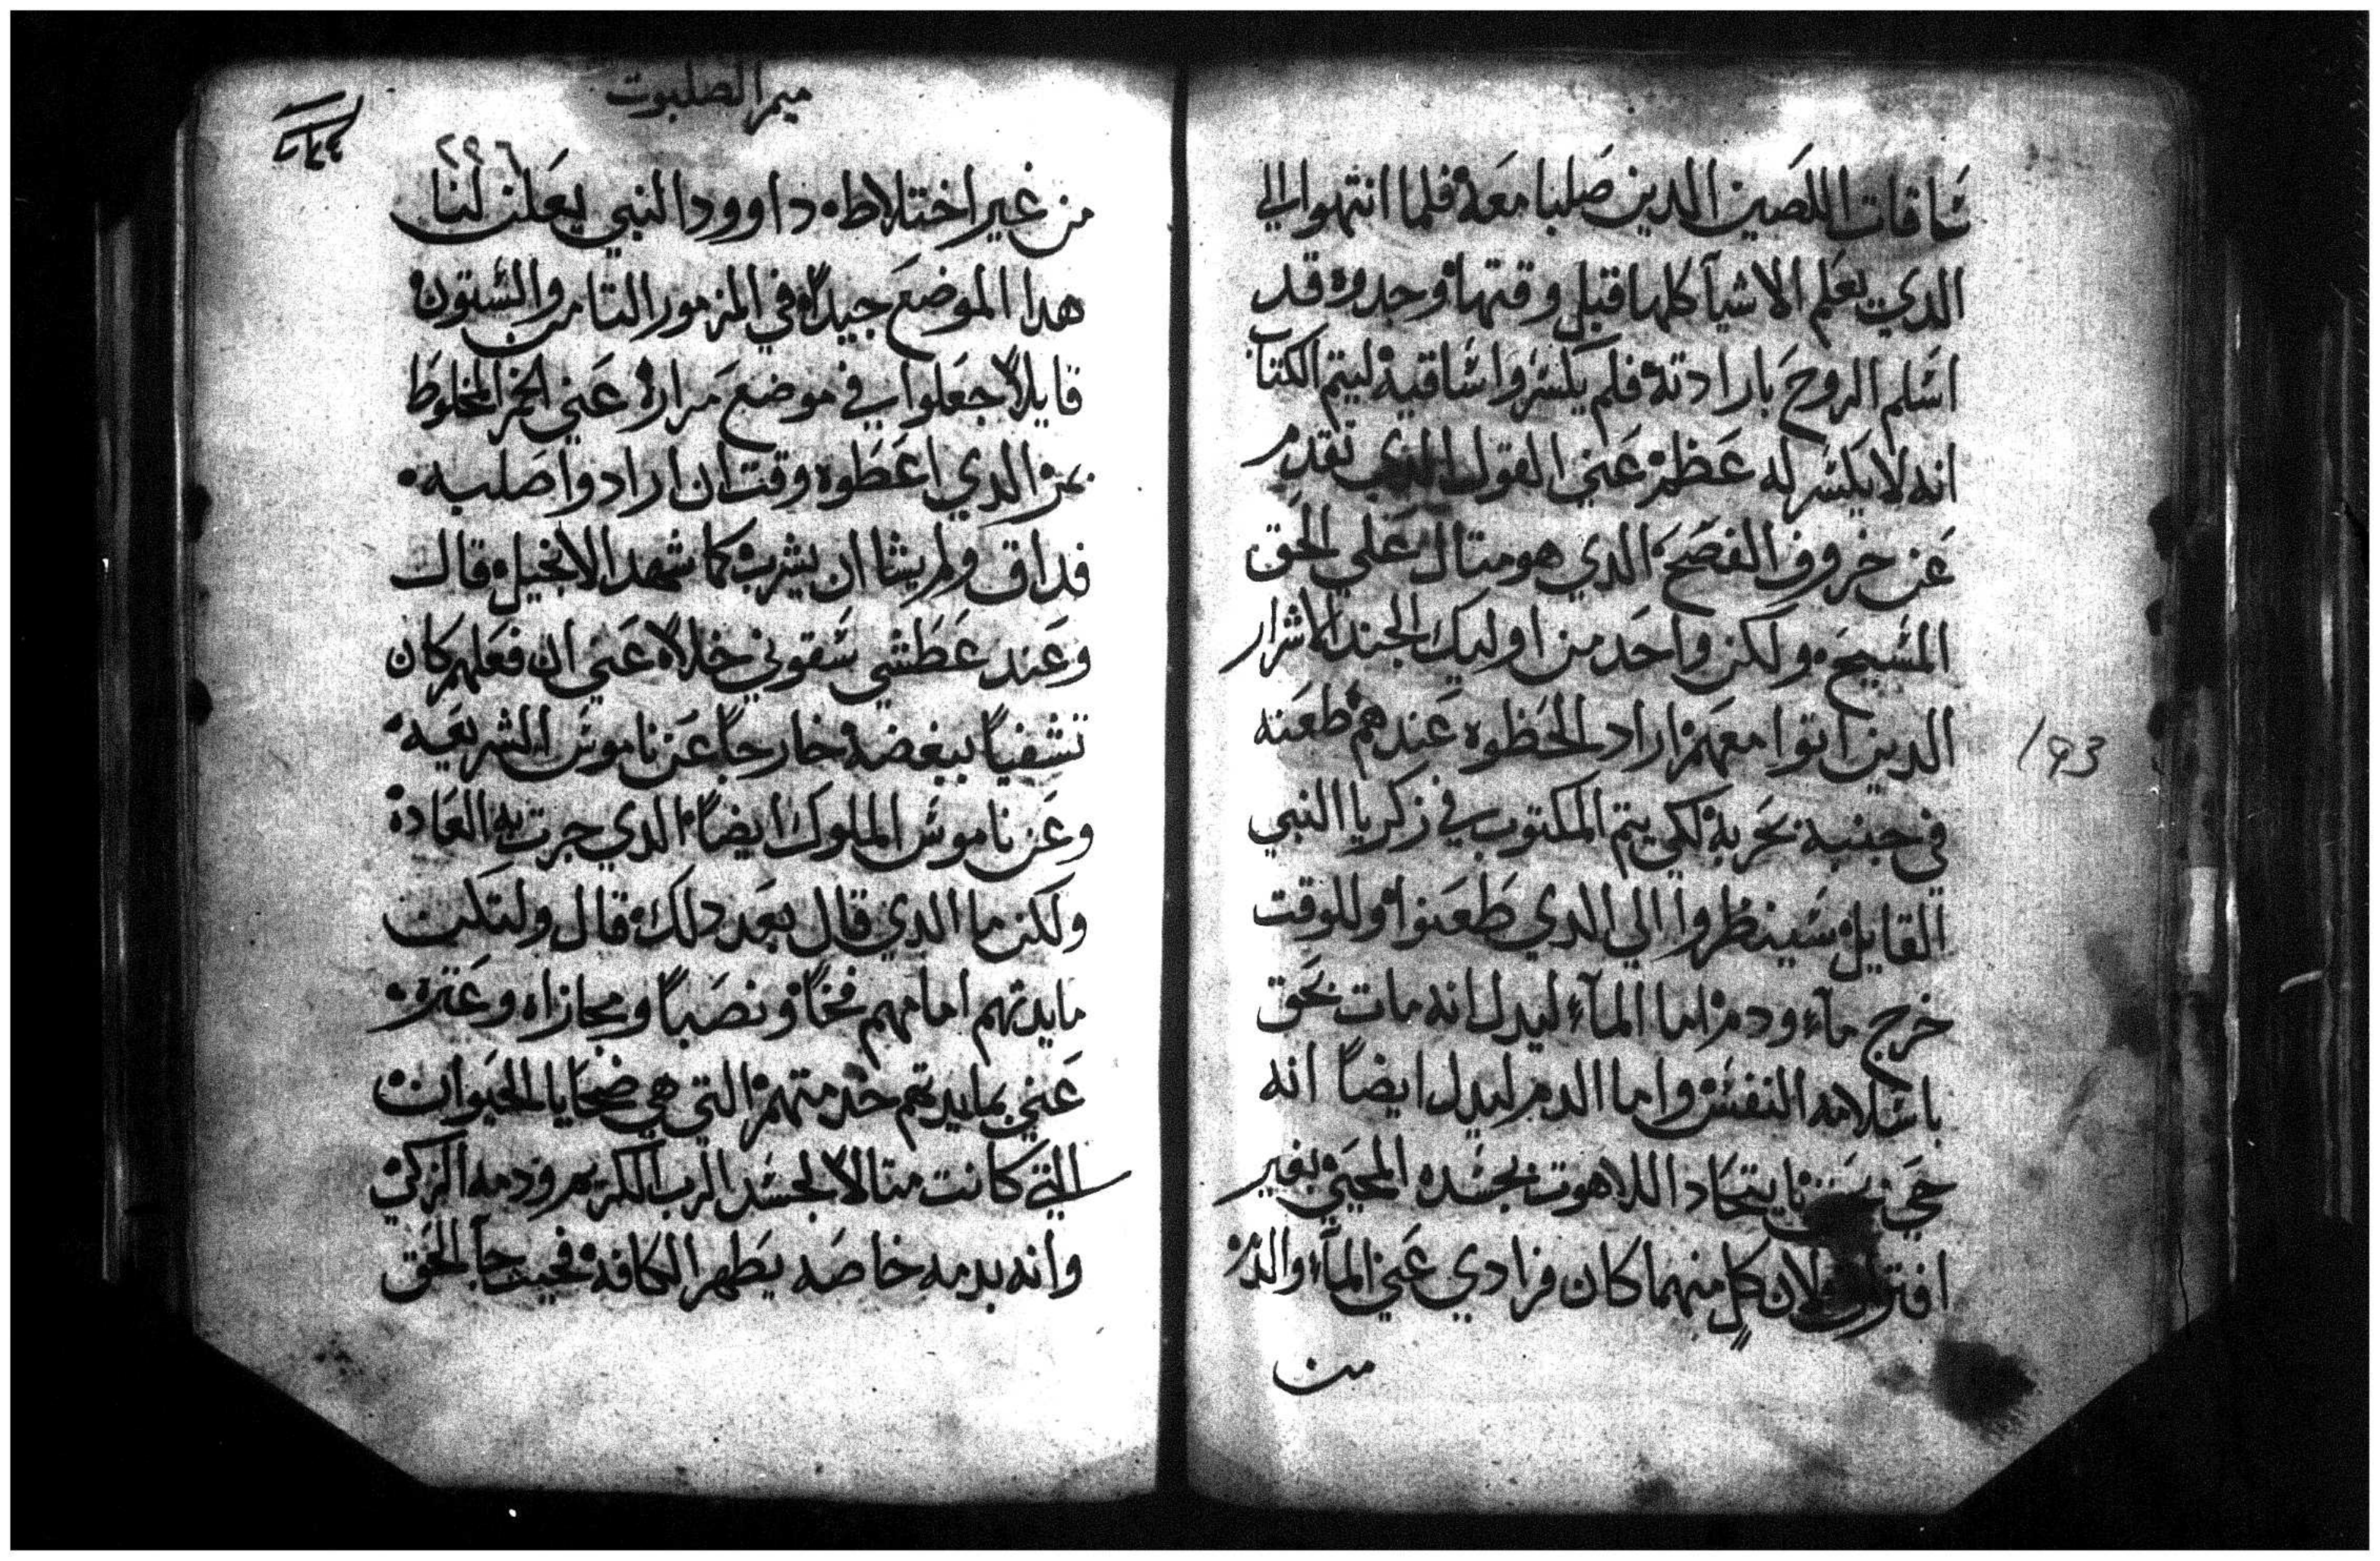 ساقات اللصين الدين صلبا معه فلما انتهوا الي
الدي يعلم الاشيآ كلها قبل وقتها وجدوه قد
اسلم الروح بارادته فلم يكسروا ساقيه ليتم الكتاب
انه لا يكسر له عظم عني القول الدي تقدم
عن خروف الفصح الدي هو متال علي الحق
المسيح ولكن واحد من اوليك الجند الاشرار
الدين اتوا معهم اراد الحظوه عندهم طعنه
في جنبه بحربة لكي يتم المكتوب في زكريا النبي
القايل سينظروا الي الدي طعنوا وللوقت
خرج مآء ودم اما المآء ليدل انه مات بحق
باسلامه النفس واما الدم ليدل ايضاً انه
حي باتحاد اللاهوت بجسده المحيي بغير
افتراق لان كلٍ منهما كان فرادي عني المآء والدم
من
193
ميمر الصلبوت
٢٩٦
من غير اختلاط داوود النبي يعلن لنا
هدا الموضع جيداً في المزمور التامن والستون
قايلاً جعلوا في موضع مرارة عني الخمر المخلوط
بمر الدي اعطوه وقت ان ارادوا صلبه
فداق ولم يشا ان يشرب كما شهد الانجيل قال
وعند عطشي سقوني خلاً عني ان فعلهم كان
تشفياً ببغضه خارجاً عن ناموس الشريعه
وعن ناموس الملوك ايضاً الدي جرت به العادة
ولكن ما الدي قال بعد دلك قال ولتكن
مايدتهم امامهم فخاً ونصباً ومجازاه وعترة
عني بمايدتهم خدمتهم التي هي ضحايا الحيوان
التي كانت متالاً لجسد الرب الكريم ودمه الزكي
وانه بدمه خاصه يطهر الكافه فحيت جآ الحق